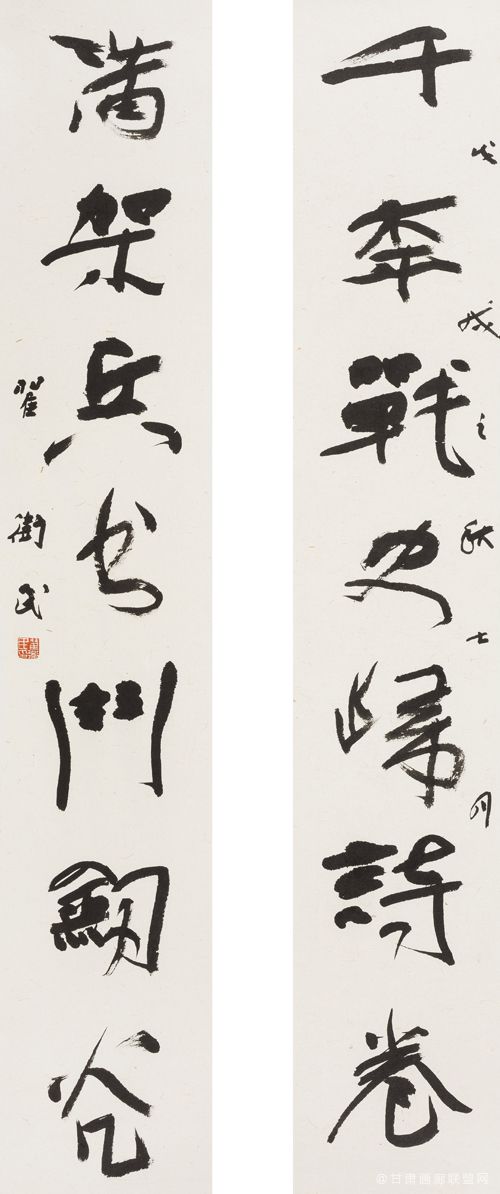 千秊戰史歸詩卷
戊戌之秋七月
滿架兵书鬥劒光
翟衛民
@甘肃画廊联盟网